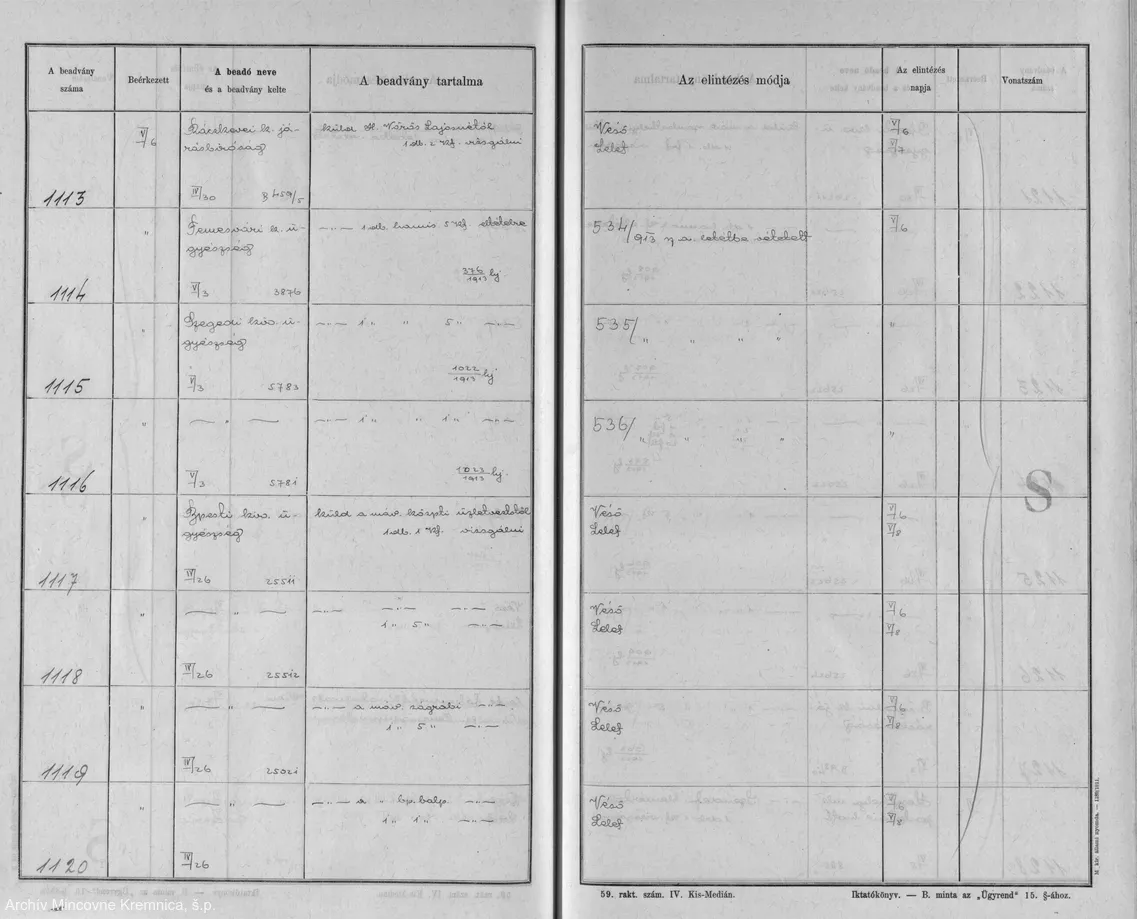 A beadvány száma
Beérkezett
A beadó neve és a beadvány kelte
A beadvány tartalma
Az elintézés módja
Az elintézés napja
Vonatszám
V/6 Ráckevei k. já- küld
rásbíróság 1 db. 2 Kf.
1113 IV/30 8459/5
Véső V/6
Lelef V/7
" Temesvári k. ü- —"— 1 db. hamis 5 Kf.
gyészség
376/1913 bj.
1114 V/3 3876
534/913 V/6
" Szegedi kir. ü- —"— 1 " " 5 " —"—
gyészség
1022/1913 bj.
1115 V/3 5783
535/ " " " " "
" — " — —"— 1 " " 1 " —"—
1023/1913 bj.
1116 V/3 5781
536/ " " " " "
" Bpesti kir. ü- küld a máv. közpti
gyészség 1 db. 1 Kf. vizsgálni
1117 IV/26 25511
Véső V/6
Lelef V/8
" — " — —"— —"— —"—
1 " 5 " —"—
1118 IV/26 25512
Véső V/6
Lelef V/8
" — " — —"— a máv. zágrábi —"—
1 " 5 " —"—
1119 IV/26 25021
Véső V/6
Lelef V/8
" — " — —"— a " bp. balp. —"—
1 " 1 " —"—
1120 IV/26
Véső V/6
Lelef V/8
S
59. rakt. szám. IV. Kis-Medián.
Iktatókönyv. — B. minta az „Ügyrend" 15. §-ához.
Archív Mincovne Kremnica, š.p.